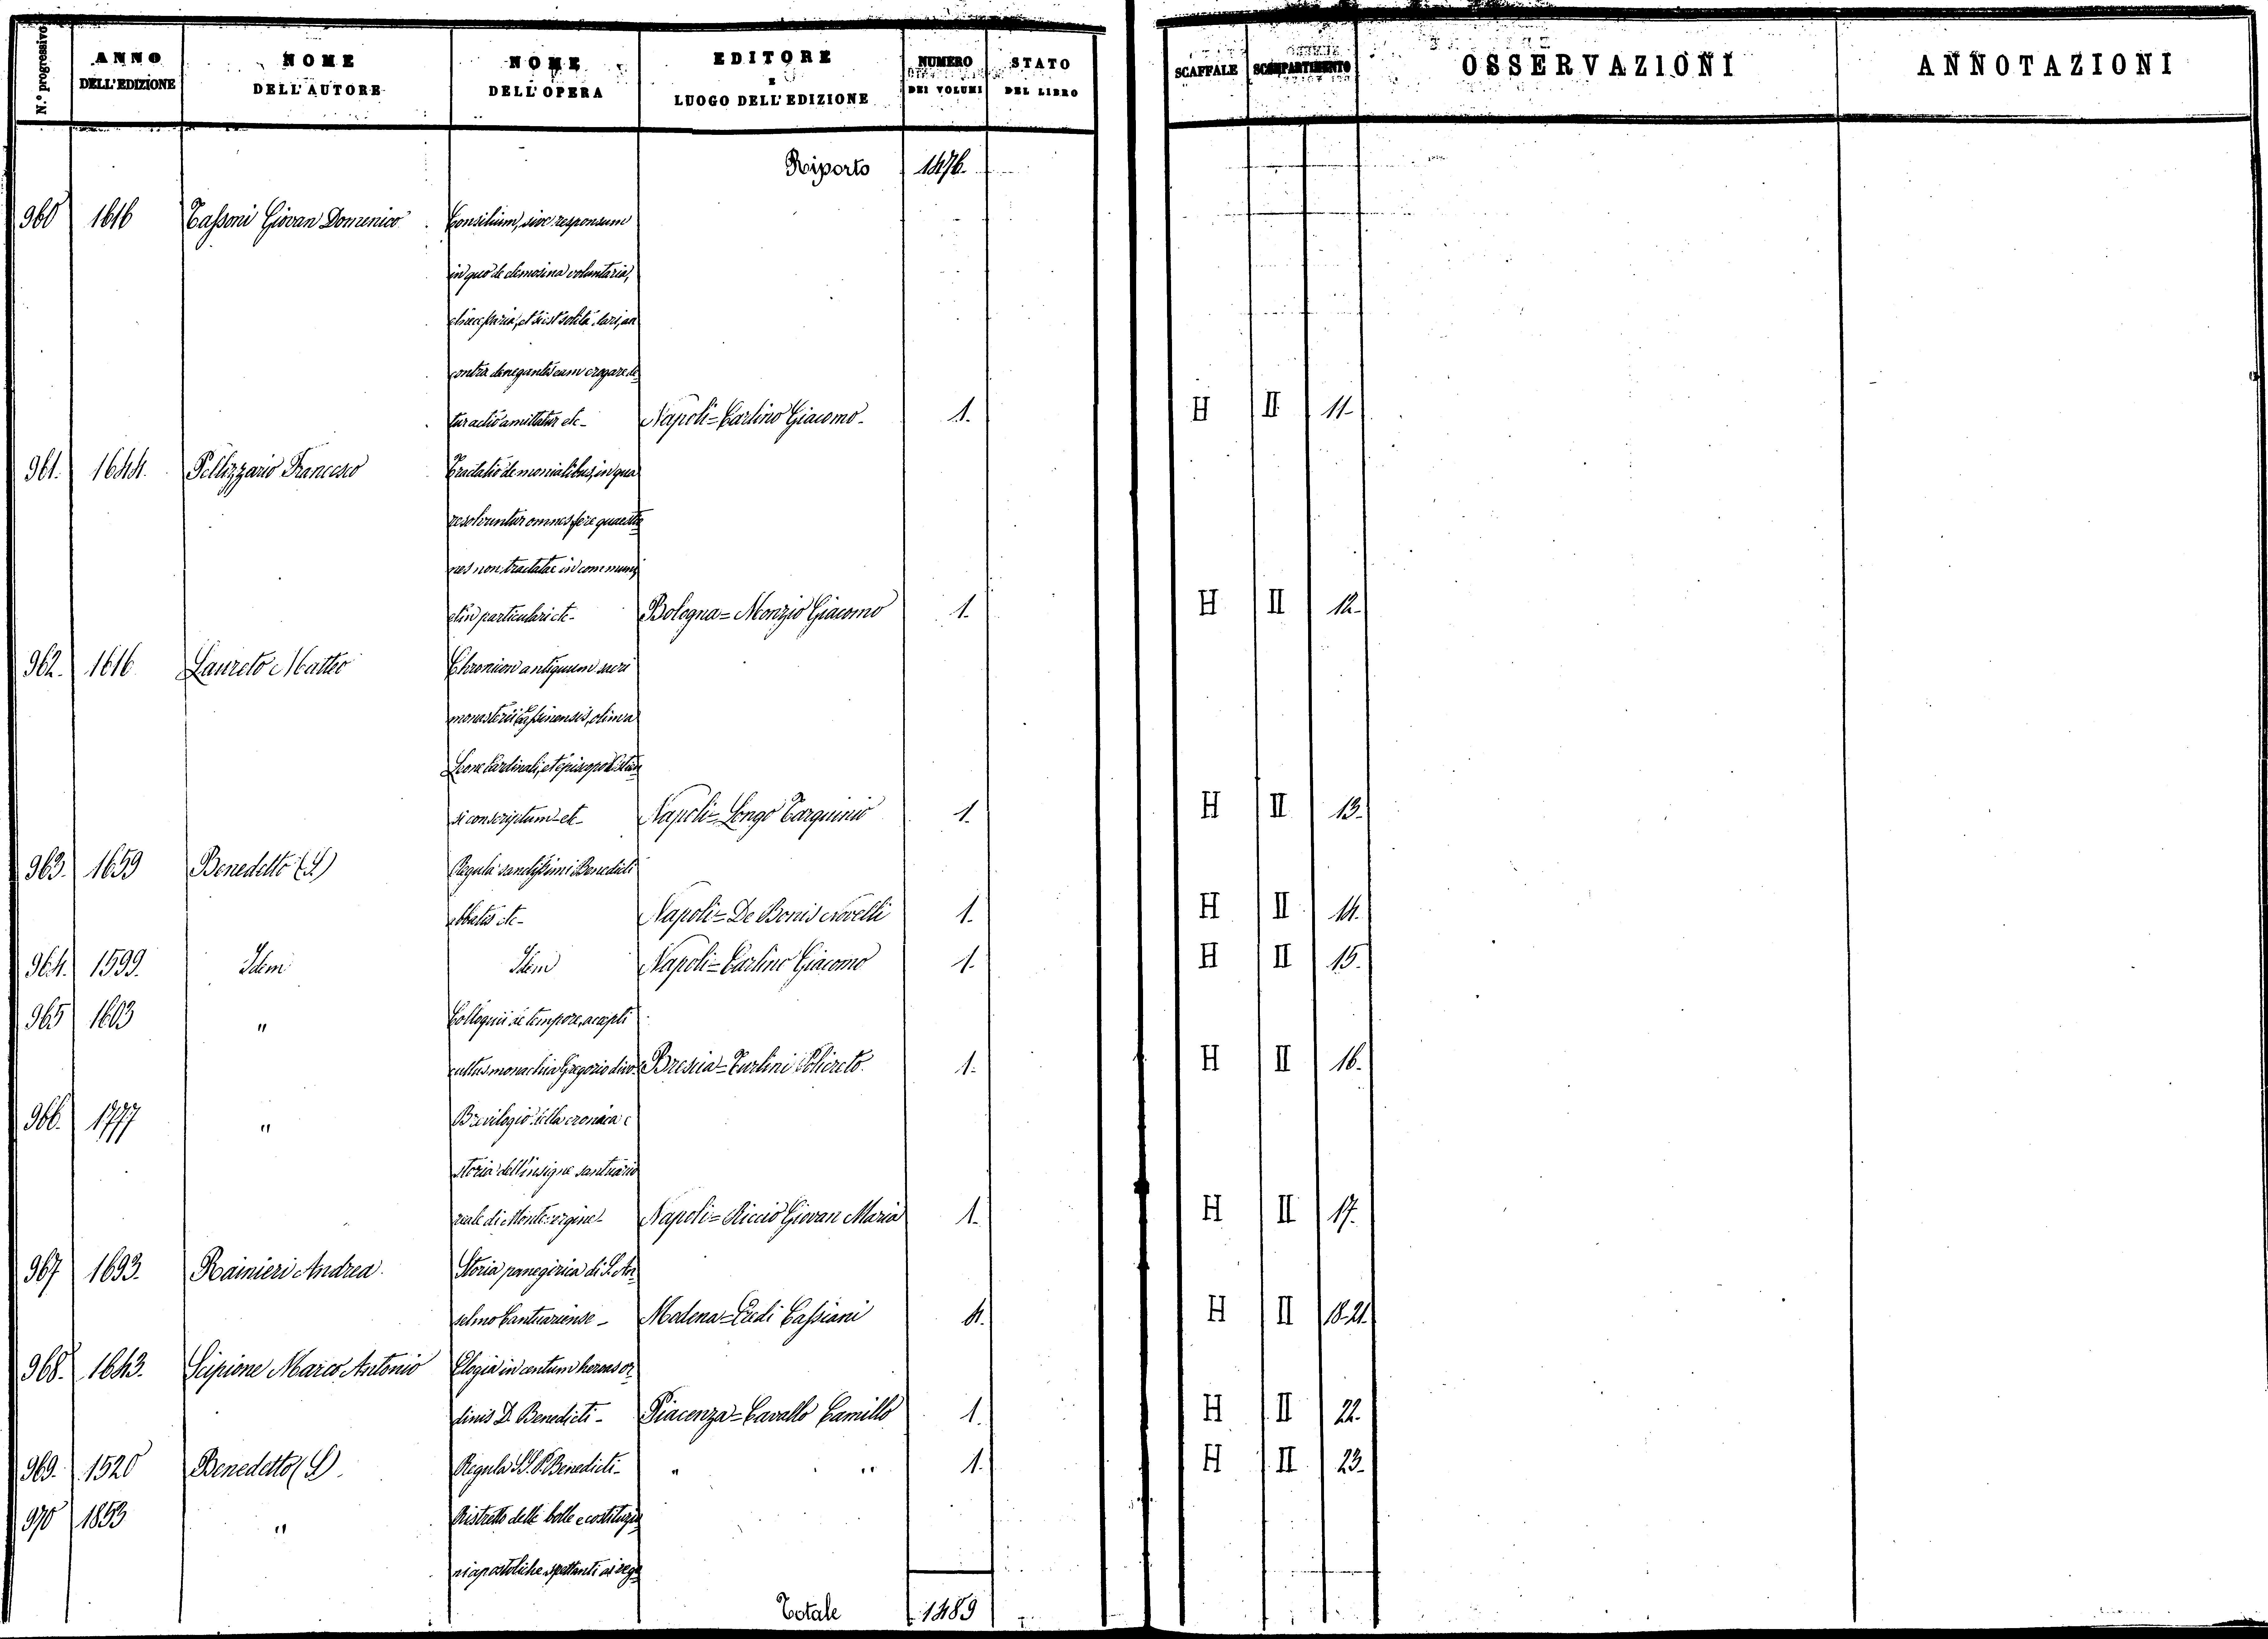 N.º progressivo ANNO DELL'EDIZIONE NOME DELL'AUTORE NOME DELL'OPERA EDITORE E LUOGO DELL'EDIZIONE NUMERO DEI VOLUMI STATO DEL LIBRO SCAFFALE SCOMPARTIMENTO OSSERVAZIONI ANNOTAZIONI
Riporto 1476.
960 1616 Tassoni Giovan Domenico Consilium, sive responsum
in quo de elemosina voluntaria,
contra denegantes eam erogare de
tur actio amittatur etc- Napoli=Carlino Giacomo- 1. H II 11-
961. 1644. Pellizzario Francesco Tractatio de monialibus, in qua
resolvuntur omnes fere quaestio
nes non tractatae in communi,
et in particulari etc- Bologna=Monzio Giacomo 1. H II 12-
962. 1616 Laureto Matteo Chronicon antiquum sacri
monasterii Cassinensis, olim a
Leone Cardinali, et episcopo Ostien
si conscriptum etc- Napoli=Longo Tarquinio 1. H II 13-
963. 1659 Benedetto (S.) Regula sanctissimi Benedicti
abbatis etc- Napoli=De Bonis Novelli 1. H II 14.
964. 1599. Idem Idem Napoli=Carlino Giacomo 1. H II 15.
965 1603 " Colloquii de tempore, accepti
cultus monachi a Gregorio divo- Brescia=Turlini 1. H II 16.
966. 1777 " Brevilogio della cronica e
storia dell'insigne santuario
reale di Monte-vergine- Napoli=Riccio Giovan Maria 1. H II 17.
967 1693. Rainieri Andrea. Storia panegirica di S. An
selmo Cantuariense- Modena=Eredi Cassiani 4. H II 18-21.
968. 1643. Scipione Marco Antonio Elogia in centum heroas or
dinis D. Benedicti- Piacenza=Cavallo Camillo 1. H II 22.
969. 1520 Benedetto (S.) Regula SS. P. Benedicti- " " 1. H II 23.
970 1853 " Ristretto delle bolle e costituzio
ni apostoliche spettanti ai rego
Totale 1489